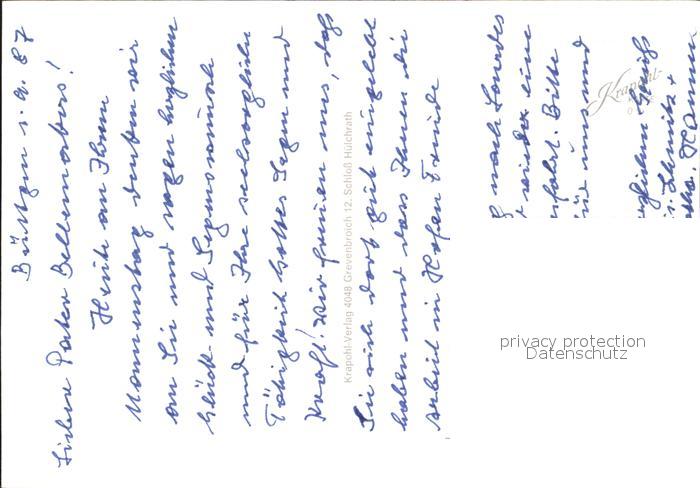 Büttgen 1.9.87
Lieber Pater Bellemakers!
Heute an Ihrem
Namenstag denken wir
an Sie und sagen herzlichen
Glück- und Segenswünsche
und für Ihre seelsorgliche
Tätigkeit Gottes Segen und
Kraft! Wir freuen uns, daß
Sie sich dort gut eingelebt
haben und dass Ihnen die
Arbeit in Hofen Freude
nach Lourdes
wieder eine
fahrt. Bitte
für uns und
Schmitz +
Krapohl-Verlag 4048 Grevenbroich 12, Schloß Hülchrath
Krapohl-
privacy protection
Datenschutz